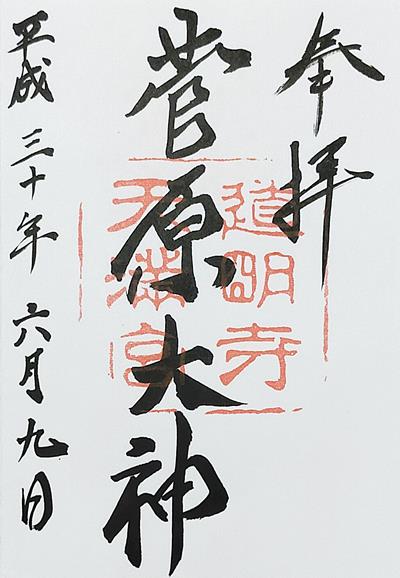 奉拝
菅原大神
道明寺
天満宮
平成三十年六月九日